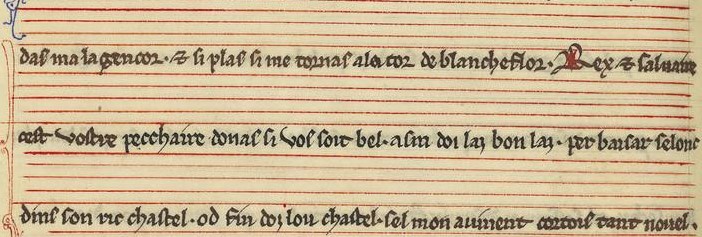 das ma la gencor · ⁊ si plas si me tornas a la cor de blancheflor · Rex ⁊ salvaire
cest vostre pecchaire donas si vos soit bel · a fin doi laz bon laz · per baisar selonc
dins son ric chastel · od fin doz lou chastel · sel mon avinent cortois tant novel ·